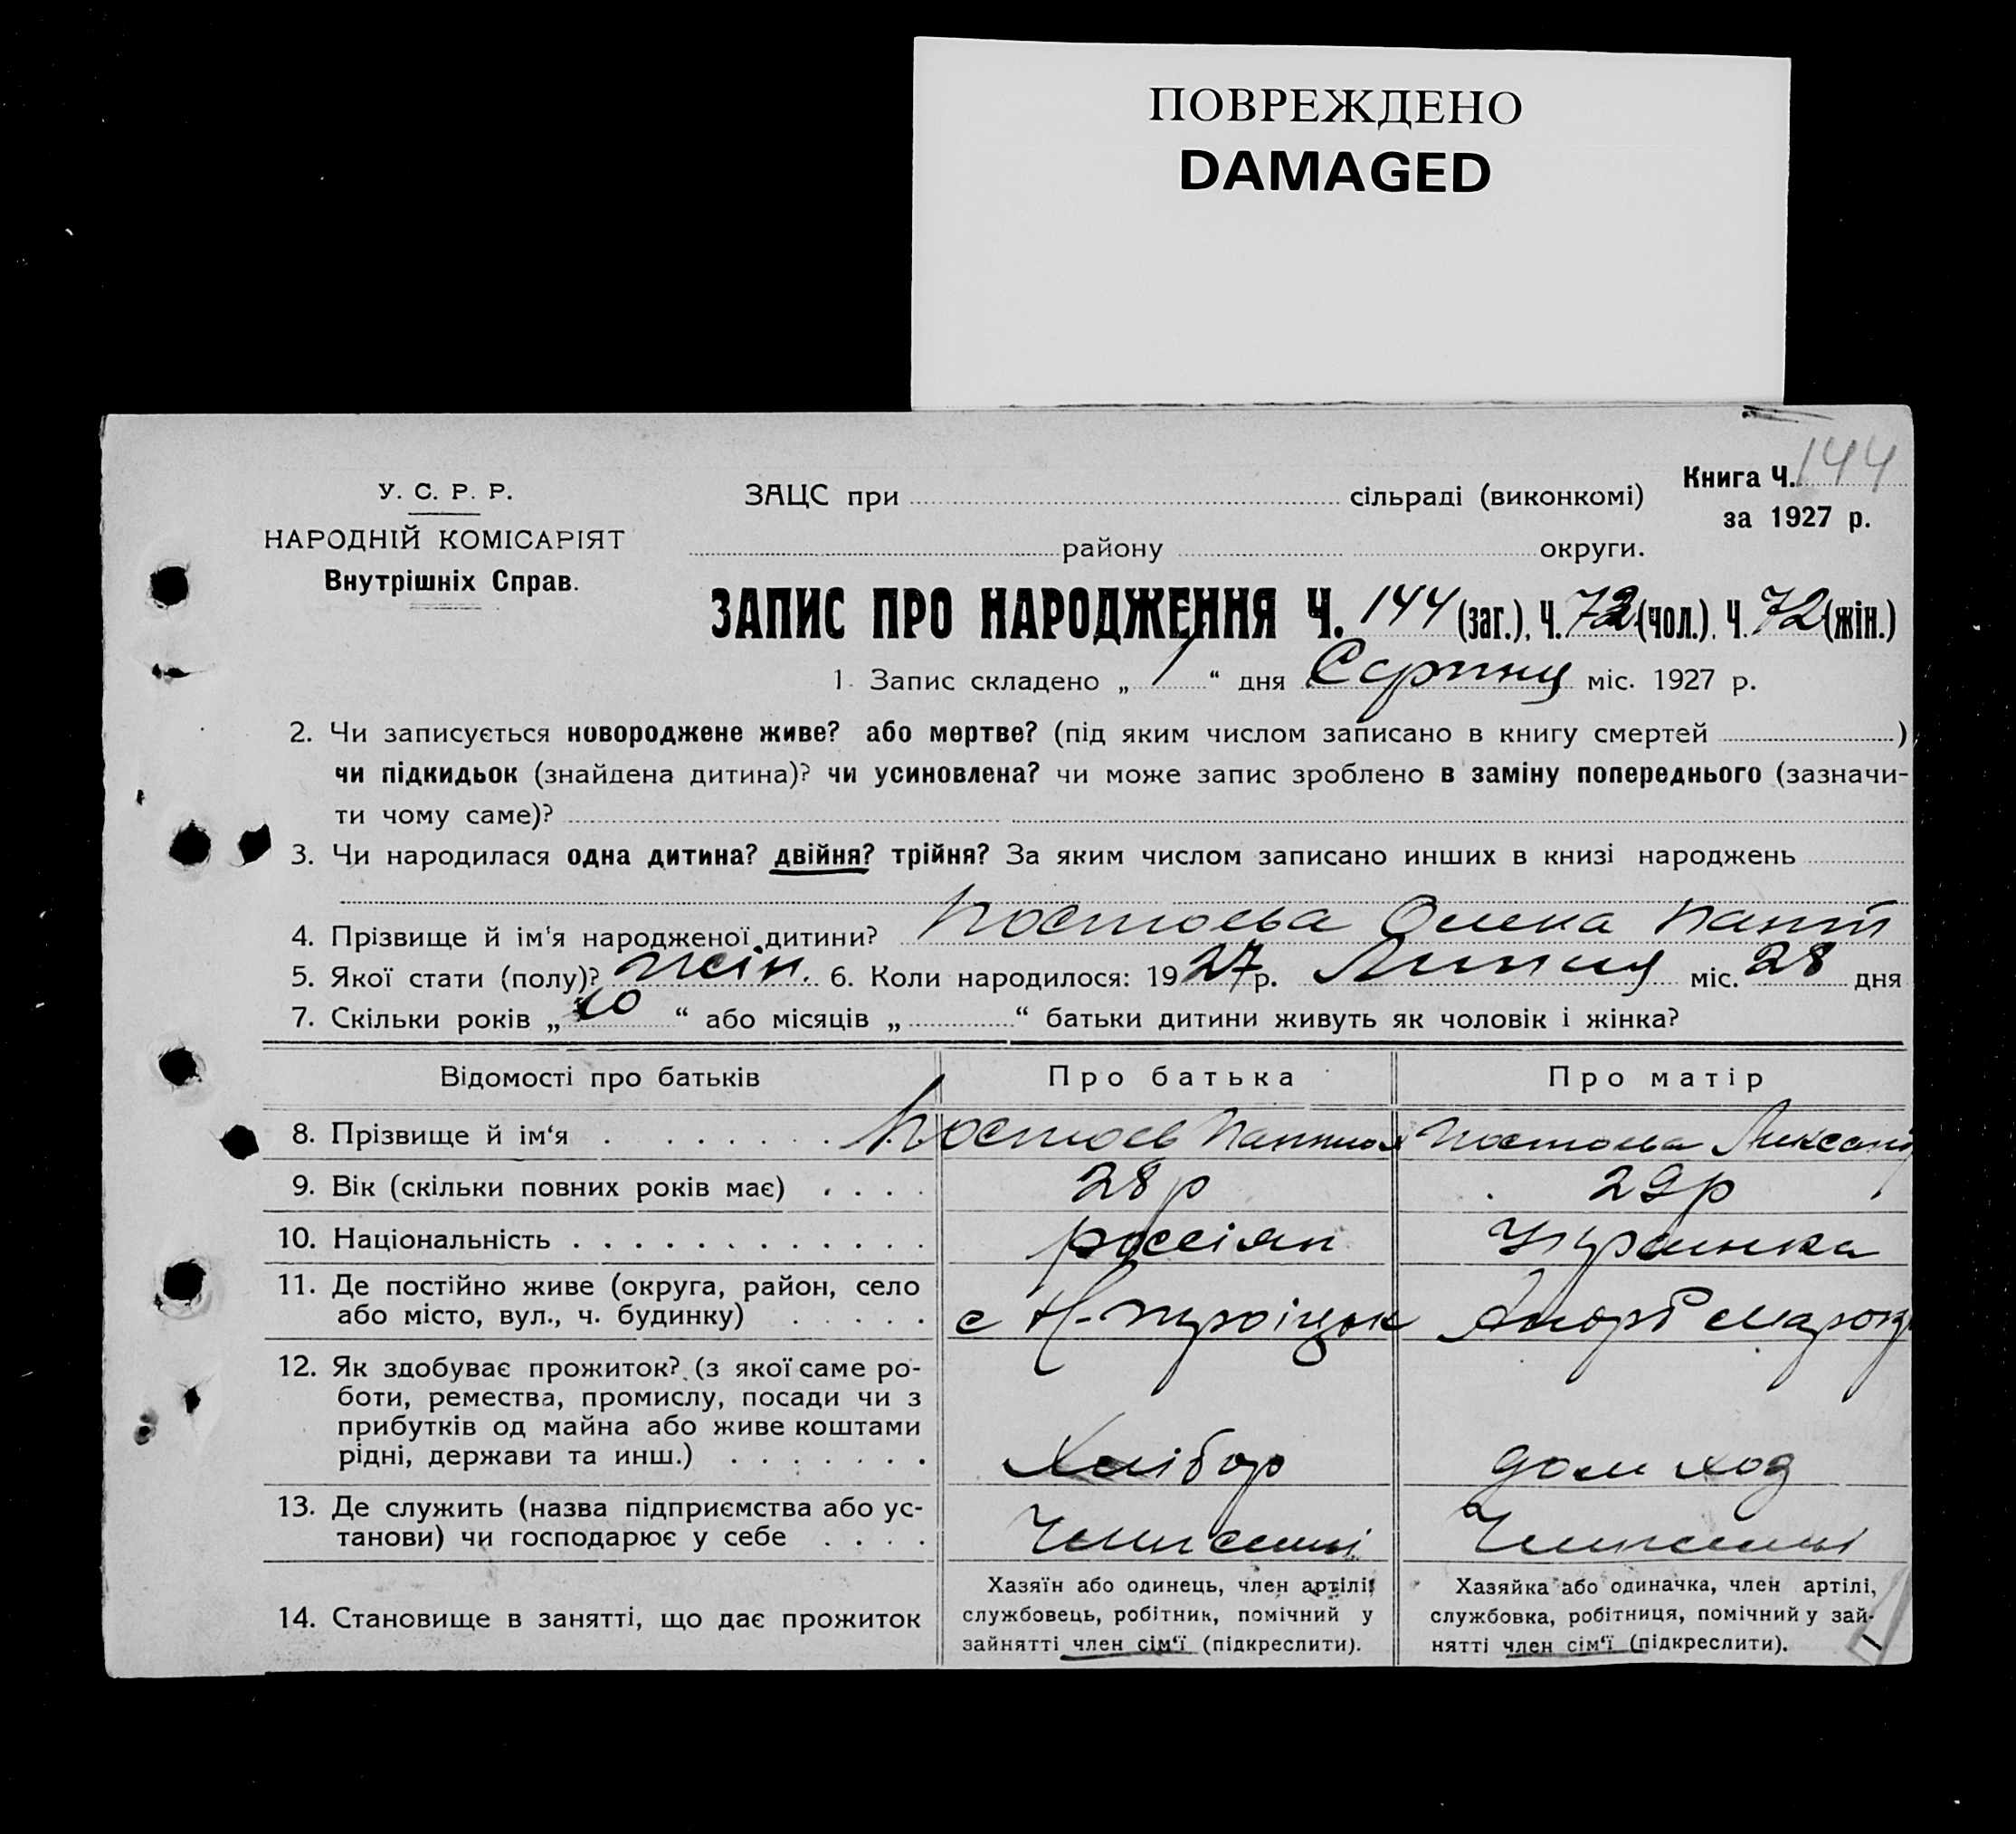 ПОВРЕЖДЕНО
DAMAGED
Книга Ч. 144
за 1927 р.
У. С. Р. Р.
НАРОДНІЙ КОМІСАРІЯТ
Внутрішніх Справ.
ЗАЦС при сільраді (виконкомі)
району округи.
ЗАПИС ПРО НАРОДЖЕННЯ Ч. 144 (заг.), Ч. 72 (чол.), Ч. 72 (жін.)
1. Запис складено „1“ дня Серпня міс. 1927 р.
2. Чи записується новороджене живе? або мертве? (під яким числом записано в книгу смертей )
чи підкидьок (знайдена дитина)? чи усиновлена? чи може запис зроблено в заміну попереднього (зазначи-
ти чому саме)?
3. Чи народилася одна дитина? двійня? трійня? За яким числом записано инших в книзі народжень
4. Прізвище й ім'я народженої дитини? Постоєва Олена Пант
5. Якої стати (полу)? жін. 6. Коли народилося: 1927 р. Липня міс. 28 дня
7. Скільки років „10“ або місяців „ “ батьки дитини живуть як чоловік і жінка?
Відомості про батьків Про батька Про матір
8. Прізвище й ім‘я Постоєв Постоєва
9. Вік (скільки повних років має) 28 р 29 р
10. Національність россіян Украинка
11. Де постійно живе (округа, район, село
або місто, вул., ч. будинку) с Н-
12. Як здобуває прожиток? (з якої саме ро-
боти, ремества, промислу, посади чи з
прибутків од майна або живе коштами
рідні, держави та инш.) Хлібор дом ход
13. Де служить (назва підприємства або ус-
танови) чи господарює у себе
14. Становище в занятті, що дає прожиток
Хазяїн або одинець, член артілі,
службовець, робітник, помічний у
зайнятті член сім‘ї (підкреслити).
Хазяйка або одиначка, член артілі,
службовка, робітниця, помічний у зай-
нятті член сім‘ї (підкреслити).